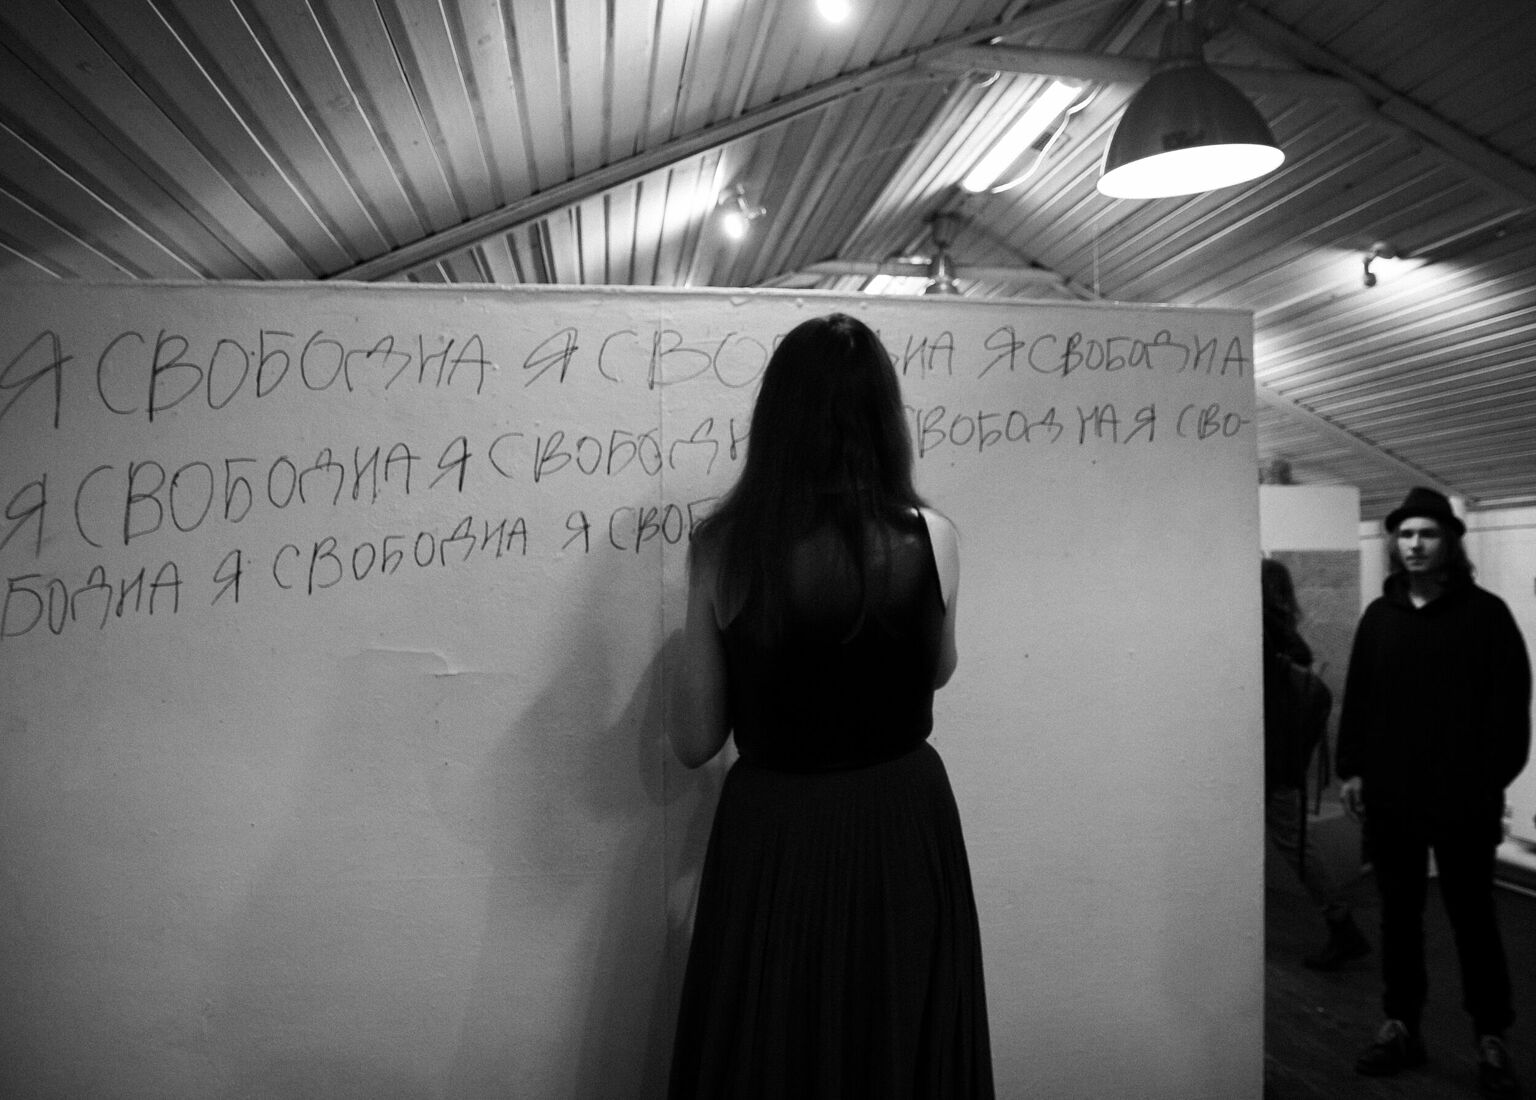 Я СВОБОДНА Я СВО НА Я СВОБОДНА
Я СВОБОДНА Я СВОБОДН СВОБОДНА Я СВО-
БОДНА Я СВОБОДНА Я СВОБ